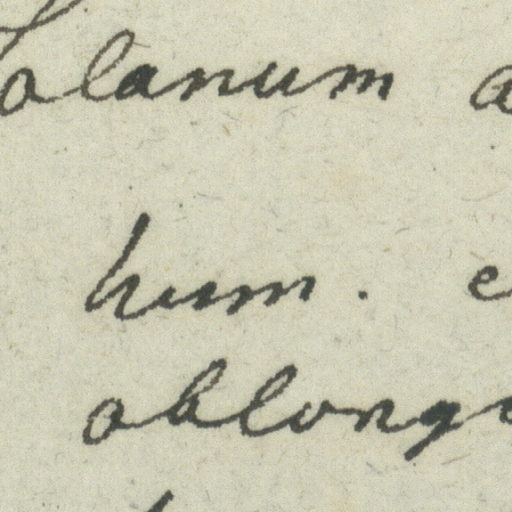 Solanum a
hum. e
oblong